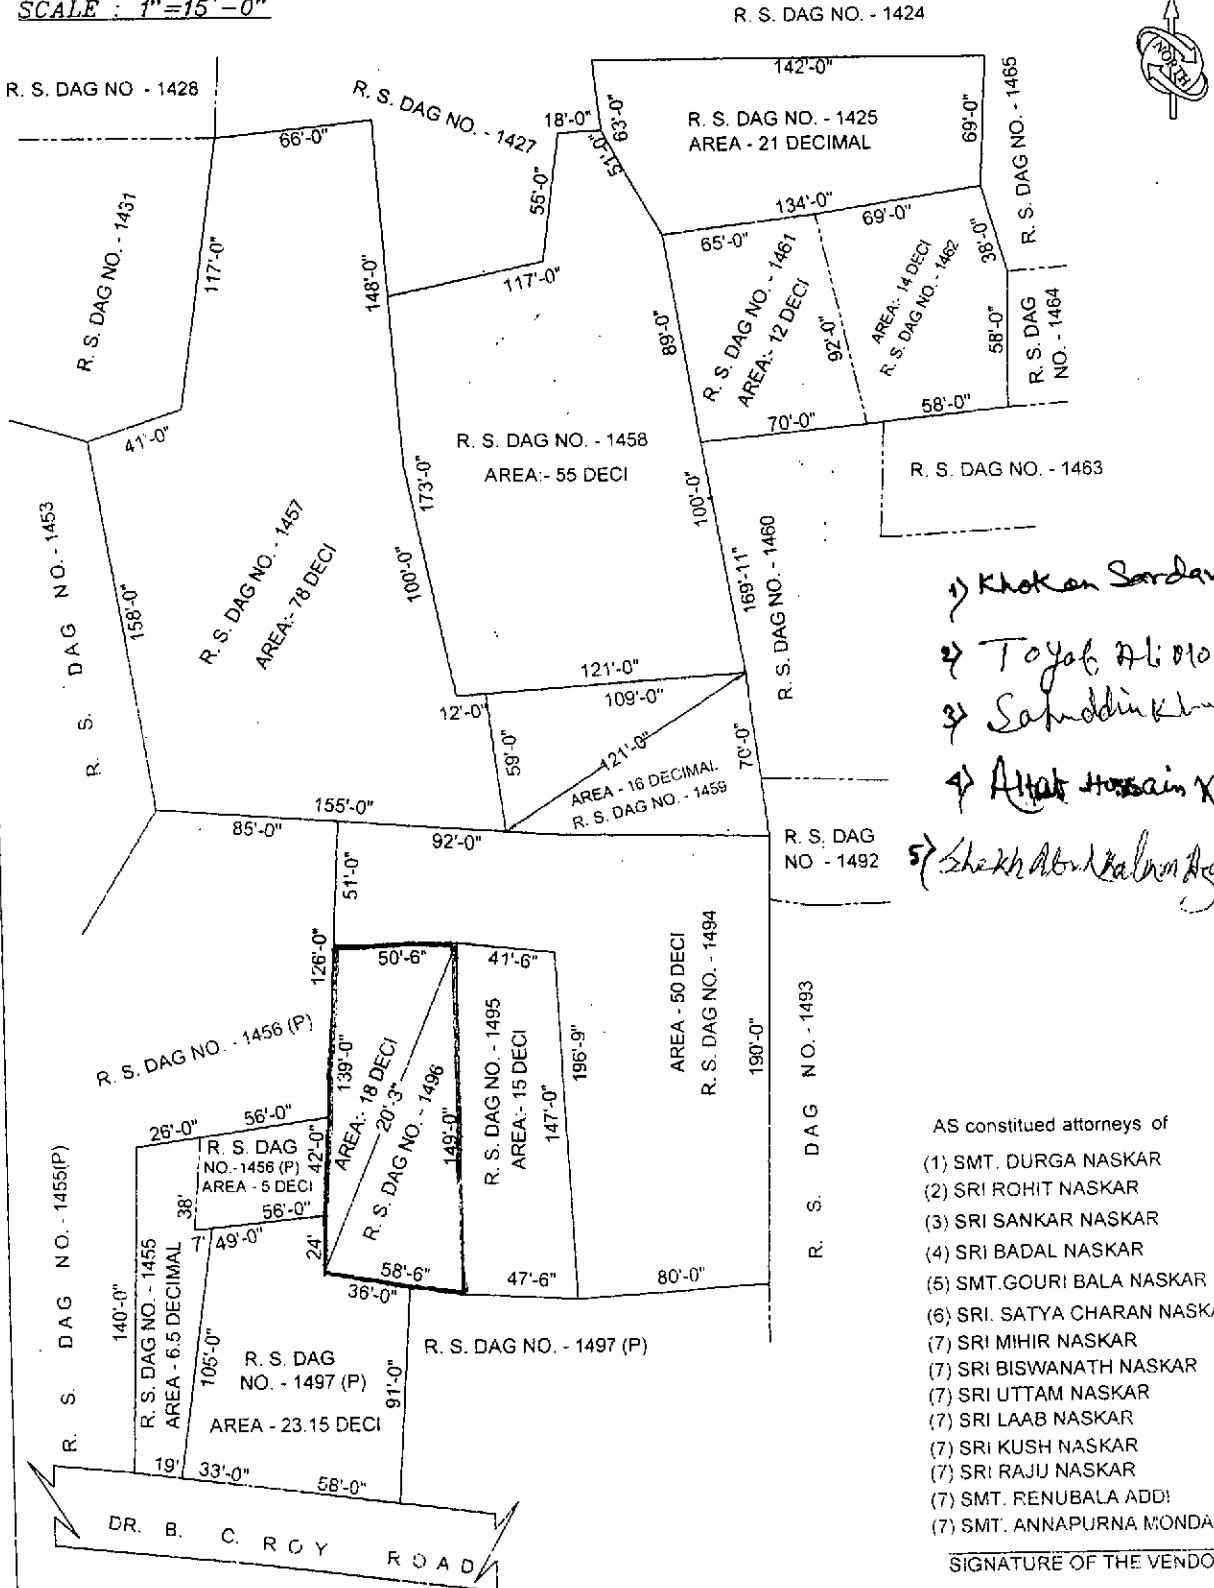 SCALE : 1"=15'-0"
R. S. DAG NO. - 1424
NORTH
R. S. DAG NO - 1428
R. S. DAG NO. - 1427
66'-0"
18'-0"
63'-0"
51'-0"
142'-0"
R. S. DAG NO. - 1425
AREA - 21 DECIMAL
69'-0"
R. S. DAG NO. - 1465
R. S. DAG NO. - 1431
117'-0"
148'-0"
55'-0"
117'-0"
134'-0"
65'-0"
69'-0"
38'-0"
89'-0"
R. S. DAG NO. - 1461
AREA:- 12 DECI
92'-0"
AREA:- 14 DECI
R. S. DAG NO. - 1462
58'-0"
R. S. DAG
NO. - 1464
41'-0"
70'-0"
58'-0"
R. S. DAG NO. - 1458
AREA:- 55 DECI
R. S. DAG NO. - 1463
173'-0"
100'-0"
100'-0"
169'-11"
R. S. DAG NO. - 1460
R. S. DAG NO. - 1453
158'-0"
R. S. DAG NO. - 1457
AREA:- 78 DECI
1) Khokan Sardar
2) Toyab Ali
3)
4) Altab Hossain
5) Shekh Abul Kalam
121'-0"
12'-0"
109'-0"
59'-0"
121'-0"
70'-0"
AREA - 16 DECIMAL
R. S. DAG NO. - 1459
155'-0"
85'-0"
92'-0"
R. S. DAG
NO - 1492
51'-0"
126'-0"
50'-6"
41'-6"
AREA - 50 DECI
R. S. DAG NO. - 1494
R. S. DAG NO. - 1493
190'-0"
R. S. DAG NO. - 1456 (P)
139'-0"
AREA:- 18 DECI
20'-3"
R. S. DAG NO. - 1496
149'-0"
R. S. DAG NO. - 1495
AREA:- 15 DECI
147'-0"
196'-9"
26'-0"
56'-0"
R. S. DAG
NO.-1456 (P)
AREA - 5 DECI
42'-0"
38'
56'-0"
7'
49'-0"
24'
58'-6"
36'-0"
47'-6"
80'-0"
R. S. DAG NO. - 1455(P)
140'-0"
R. S. DAG NO. - 1455
AREA - 6.5 DECIMAL
105'-0"
R. S. DAG
NO. - 1497 (P)
AREA - 23.15 DECI
91'-0"
R. S. DAG NO. - 1497 (P)
19'
33'-0"
58'-0"
DR. B. C. ROY ROAD
AS constituted attorneys of
(1) SMT. DURGA NASKAR
(2) SRI ROHIT NASKAR
(3) SRI SANKAR NASKAR
(4) SRI BADAL NASKAR
(5) SMT.GOURI BALA NASKAR
(6) SRI. SATYA CHARAN NASKA
(7) SRI MIHIR NASKAR
(7) SRI BISWANATH NASKAR
(7) SRI UTTAM NASKAR
(7) SRI LAAB NASKAR
(7) SRI KUSH NASKAR
(7) SRI RAJU NASKAR
(7) SMT. RENUBALA ADDI
(7) SMT. ANNAPURNA MONDA
SIGNATURE OF THE VENDO